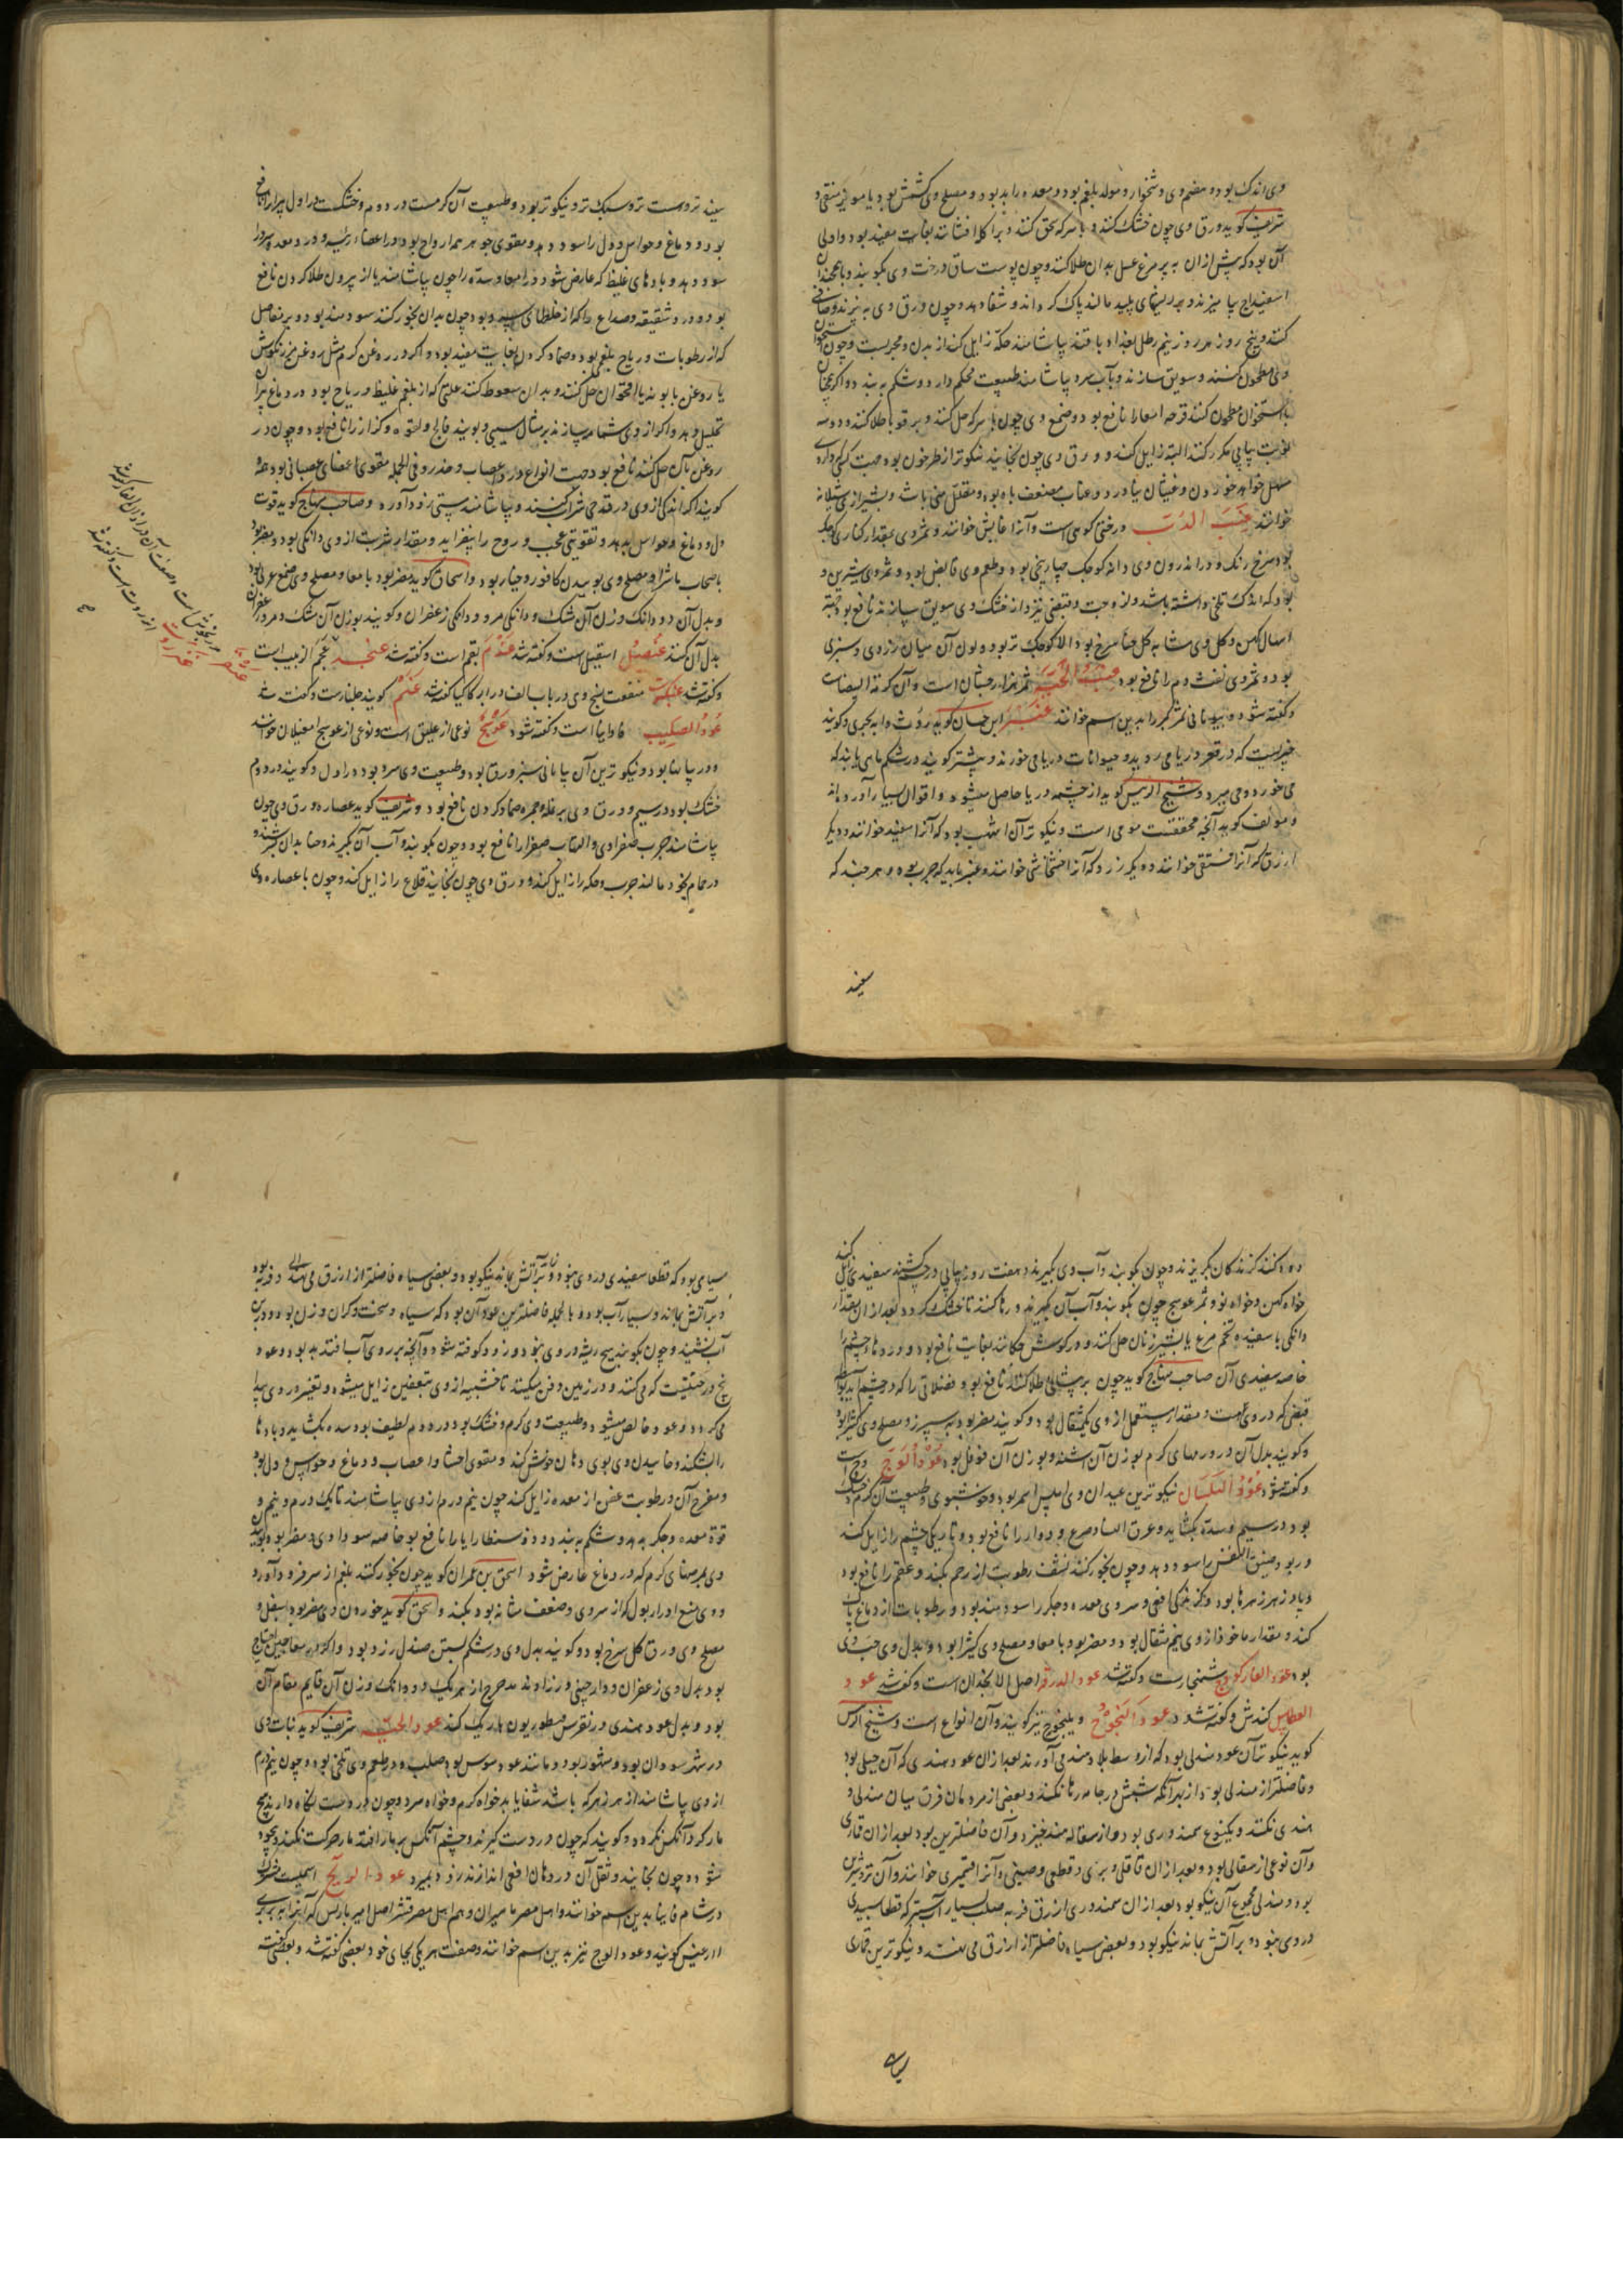 وی اندک بود و هضم وی دشخوار و مولد بلغم بود و معده را بد بود و مصلح وی کشمش بود یا مویز منقی و
شریف کوید ورق وی چون خشک کنند و با سرکه سحق کنند و بر افشانند بغایت مفید بود و اولی
آن بود که پیش از ان به پر مرغ عسل بدان طلا کنند و چون پوست ساق درخت وی بکوبند و با
اسفیداج بیامیزند و بر ریشهای پلید مالند پاک کرداند و شفا دهد و چون ورق وی به پزند و صافی
کنند و پنج روز هر روز نیم رطل بیاشامند حکه زایل کند از بدن و مجربست و چون استخوان
وی مطحون کنند و سویق سازند و بآب سرد بیاشامند طبیعت محکم دارد و شکم به بندد و اکر همچنان
با استخوان مطحون کنند قرحه امعا را نافع بود و صمغ وی چون با سرکه حل کنند و بر قوبا طلا کنند و دو سه
نوبت پیاپی مکرر کنند البته زایل کند و ورق وی چون بخایند نیکوتر از طرخون بود جهت کسی که داروی
مسهل خواهد خوردن و غثیان نیاورد و عناب مضعف باه بود و مقلل منی باشد و بشیرازی سیلانه
خوانند عنب الدب درختی کوهی است و آنرا عایش خوانند و ثمر وی بمقدار کناری کوچک
بود سرخ رنک و در اندرون وی دانه کوچک چهار پنج بود و طعم وی قابض بود و ثمر وی شیرین و
بود که اندک تلخی داشته باشد و لزوجت و قبض نیز و از خشک وی سویق سازند نافع بود جهة
اسهال کهن و کل وی مشابه کل حنا سرخ بود الا کوچک تر بود و لون آن میان زردی و سبزی
بود و ثمر وی نفث دم را نافع بود عنب الحیة ثمر هزار جشان است و آن کرمة البیضاست
و کفته شود و بیونانی ثمر کبر را بدین اسم خوانند عنبر ابن حسان کوید روث دابه بحری و کویند
چیزیست که در قعر دریا می روید و حیوانات دریا می خورند و بیشتر کویند در شکم ماهی یابند که
می خورد و می میرد و شیخ الرئیس کوید از چشمه دریا حاصل میشود و اقوال بسیار آورده اند
و مولف کوید آنچه محققست مومی است و نیکوترین آن اشهب بود که آنرا سفید خوانند و دیکر
ازرق که آنرا فستقی خوانند و دیکر زرد که آنرا خشخاشی خوانند و عنبر باید که چرب بود و هر چند که
سفید
سفید تر و سست تر و سبک تر و نیکو تر بود و طبیعت آن کرمست در دوم و خشکست در اول پیران را نافع
بود و دماغ و حواس و دل را سود دهد و مقوی جوهر همه ارواح بود در اعضاء رئیسه و درد معده سرد را
سود دهد و بادهای غلیظ که عارض شود در امعا و سده را چون بیاشامند یا از بیرون طلا کردن نافع
بود و درد شقیقه و صداع را که از خلطهای سرد بود چون بدان بخور کنند سودمند بود و بر مفاصل
که از رطوبات و ریاح بلغمی بود و ضماد کردن بغایت مفید بود و اکر در روغن کرم مثل روغن مرزنکوش
یا روغن بابونه یا اقحوان حل کنند و بدان سعوط کنند علتی که از بلغم غلیظ و ریاح بود در دماغ آنرا
تحلیل دهد و اکر از وی شمامه سازند بر مثال سیبی و بویند فالج و لقوه و کزاز را نافع بود و چون در
روغن بان حل کنند نافع بود جهت انواع درد اعصاب و خدر و فی الجمله مقوی اعضای عصبانی بود همه
کویند اکر اندکی از وی در قدحی شراب کنند و بیاشامند مستی زود آورد و صاحب منهاج کوید قوت
دل و دماغ و حواس بدهد و تقویتی عجب و روح را بیفزاید و مقدار شربت از وی دانکی بود و مضر بود
باصحاب باشرا و مصلح وی بوییدن کافور و خیار بود و اسحاق کوید مضر بود بامعا و مصلح وی صمغ عربی بود
و بدل آن دو دانک وزن آن مشک و دانکی مر و دانکی زعفران و کویند بوزن آن مشک و مر و زعفران
بدل آن کنند عنصل اسقیل است و کفته شد عندم بقم است و کفته شد عنجد عجم از بیب است
و کفته شد عنکبوت منفعت نسج وی در باب الف در اراکیا کفته شد عنم کویند جلنارست و کفته شد
عود الصلیب فاوانیا است و کفته شود عوسج نوعی از علیق است و نوعی از عوسج امغیلان خوانند
و در بیابانها بود و نیکو ترین آن بیابانی سبز ورق بود و طبیعت وی سرد بود در اول و کویند در دوم
خشک بود در سیم و ورق وی بر نمله و جمره ضماد کردن نافع بود و شریف کوید عصاره ورق وی چون
بیاشامند جرب صفراوی و التهاب صفرا را نافع بود و چون بکوبند و آب آن بکیرند و حنا بدان بسرشند و
در حمام بخود مالند جرب و حکه را زایل کند و ورق وی چون بخایند قلاع را زایل کند و چون با عصاره وی
دود کنند کزندکان بکریزند و چون بکوبند و آب وی بکیرند و هفت روز پیاپی در چشم کشند سفیدی زایل کند
خواه کهن و خواه نو و ثمر عوسج چون بکوبند و آب آن بکیرند و رها کنند تا خشک کردد و بعد از ان بمقدار
دانکی با سفیده تخم مرغ یا بشیر زنان حل کنند و در کوش چکانند بغایت نافع بود و دردهای چشم را
خاصه سفیدی آن صاحب منهاج کوید چون بر پیشانی طلا کنند نافع بود فضلاتی را که در چشم آید بواسطه
قبضی که در وی هست و مقدار مستعمل از وی یکمثقال بود و کویند مضر بود به سپرز و مصلح وی کثیرا بود
و کویند بدل آن در ورمهای کرم بوزن آن اشنه و بوزن آن فوفل بود عود الوج وج است
و کفته شود عود البلسان نیکو ترین عیدان وی املس اسمر بود و خوشبوی و طبیعت آن کرم و خشک
بود در سیم و سده بکشاید و عرق النسا و صرع و دوار را نافع بود و تاریکی چشم را زایل کند
و ربو و ضیق النفس را سود دهد و چون بخور کنند نشف رطوبت از رحم بکند و عقم را نافع بود
و پادزهر زهرها بود و کزندکی افعی و سردی معده و جکر را سودمند بود و رطوبات از دماغ پاک
کند و مقدار ماخوذ از وی نیم مثقال بود و مضر بود بامعا و مصلح وی کثیرا بود و بدل وی حب وی
بود عود العارکوج شنجارست و کفته شد عود الدرقه اصل الانجدان است و کفته شد عود
العطاس کندش و کفته شد عود النجوج و یلنجوج نیز کویند و آن انواع است و شیخ الرئیس
کوید نیکو ترین آن عود مندلی بود که از وسط بلاد هند می آورند بعد از ان عود هندی که آن جبلی بود
و فاضلتر از مندلی بود از بهر آنکه شپش در جامه رها نکند و بعضی از مردمان فرق میان مندلی و
هندی نکنند و یکنوع سمندوری بود و از سفاله هند خیزد و آن فاضلترین بود بعد از ان قماری
و آن نوعی از سفالی بود و بعد از ان قاقلی و بری و قطعی و صینی و آنرا قشمیری خوانند و آن تر و شیرین
بود و مندلی مجموع آن نیکو بود بعد از ان سمندوری ازرق فربه صلب بسیار آب سبتر که قطعا سپیدی
در وی نبود و بر آتش بماند نیکو بود و بعضی سیاه فاضلتر از ازرق می نهند و نیکوترین قماری
سیاهی
سیاهی بود که قطعا سفیدی در وی نبود و بر آتش بماند نیکو بود و بعضی سیاه فاضلتر از ازرق می نهند و فربه بود
و بر آتش بماند و بسیار آب بود و بالجمله فاضلترین عود آن بود که سیاه و سخت و کران وزن بود و در بن
آب نشیند و چون بکوبند هیچ ریشه در وی نبود و زود کوفته شود و آنچه بر روی آب افتد بد بود و عود
بیخ درختیست که می کنند و در زمین دفن میکنند تا خشبیه از وی بتعفین زایل میشود و تغییر در وی پیدا
می کردد و عود خالص میشود و طبیعت وی کرم و خشک بود در دوم لطیف بود سده بکشاید و بادها
را بشکند و خاییدن وی بوی دهان خوش کند و مقوی احشا و اعصاب و دماغ و حواس و دل بود
و مفرح آن و رطوبت عفن از معده زایل کند چون نیم درم از وی بیاشامند تا یک درم و نیم و
قوة معده و جکر بدهد و شکم به بندد و ذوسنطاریا را نافع بود خاصه سوداوی و مضر بود ببوییدن
وی بمرضهای کرم که در دماغ عارض شود اسحق بن عمران کوید چون بخور کنند بلغم از سر فرود آورد
و وی منع ادرار بول که از سردی و ضعف مثانه بود بکند و اسحق کوید خوردن وی مضر بود بسفل و
مصلح وی ورق کل سرخ بود و کویند بدل وی در شکم بستن صندل زرد بود
بود بدل وی زعفران و دارچینی و زراوند مدحرج از هر یک دو دانک وزن آن قایم مقام آن
بود و بدل عود هندی در نقرس قنطوریون باریک کند عود الحیه شریف کوید نبات وی
در شهر سودان بود و مشهور بود و مانند عود سوس بود صلب و در طعم وی تلخی بود و چون نیم درم
از وی بیاشامند از هر زهر که باشد شفا یابد خواه کرم و خواه سرد و چون در دست نکاه دارند هیچ
مار کرد آنکس نکردد و کویند که چون در دست کیرند و چشم آنکس بر مار افتد مار حرکت نکند و بیخود
شود و چون بخایند و ثفل آن در دهان افعی اندازند زود بمیرد عود الریح اسمیست مشترک
در شام فاوانیا بدین اسم خوانند و اهل مصر مامیران و هم اهل مصر قشر اصل امیر باریس که آنرا بربری
ارارغیس کویند و عود الوج نیز بدین اسم خوانند و صفت هر یکی بجای خود بعضی کفته شد و بعضی کفته